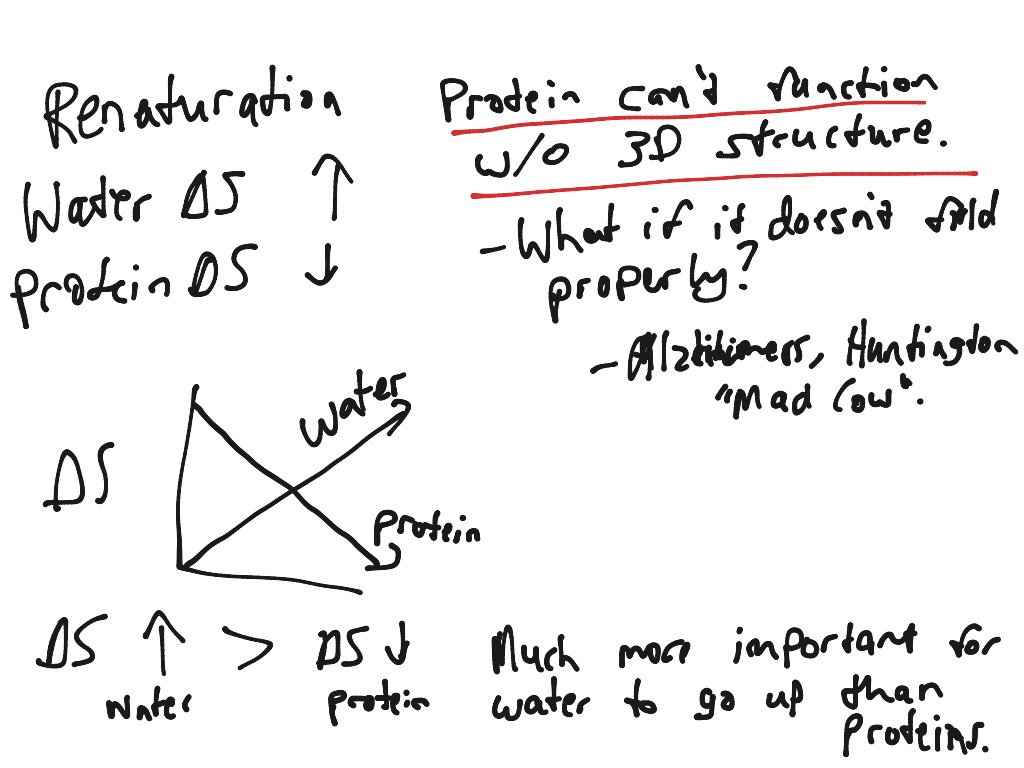 Renaturation
Water ΔS ↑
Protein ΔS ↓
Protein can't function
w/o 3D structure.
- What if it doesn't fold
properly?
- Alzhiemers, Huntington
"Mad Cow".
ΔS
Water
Protein
ΔS ↑ > ΔS ↓
water protein
Much more important for
water to go up than
Proteins.